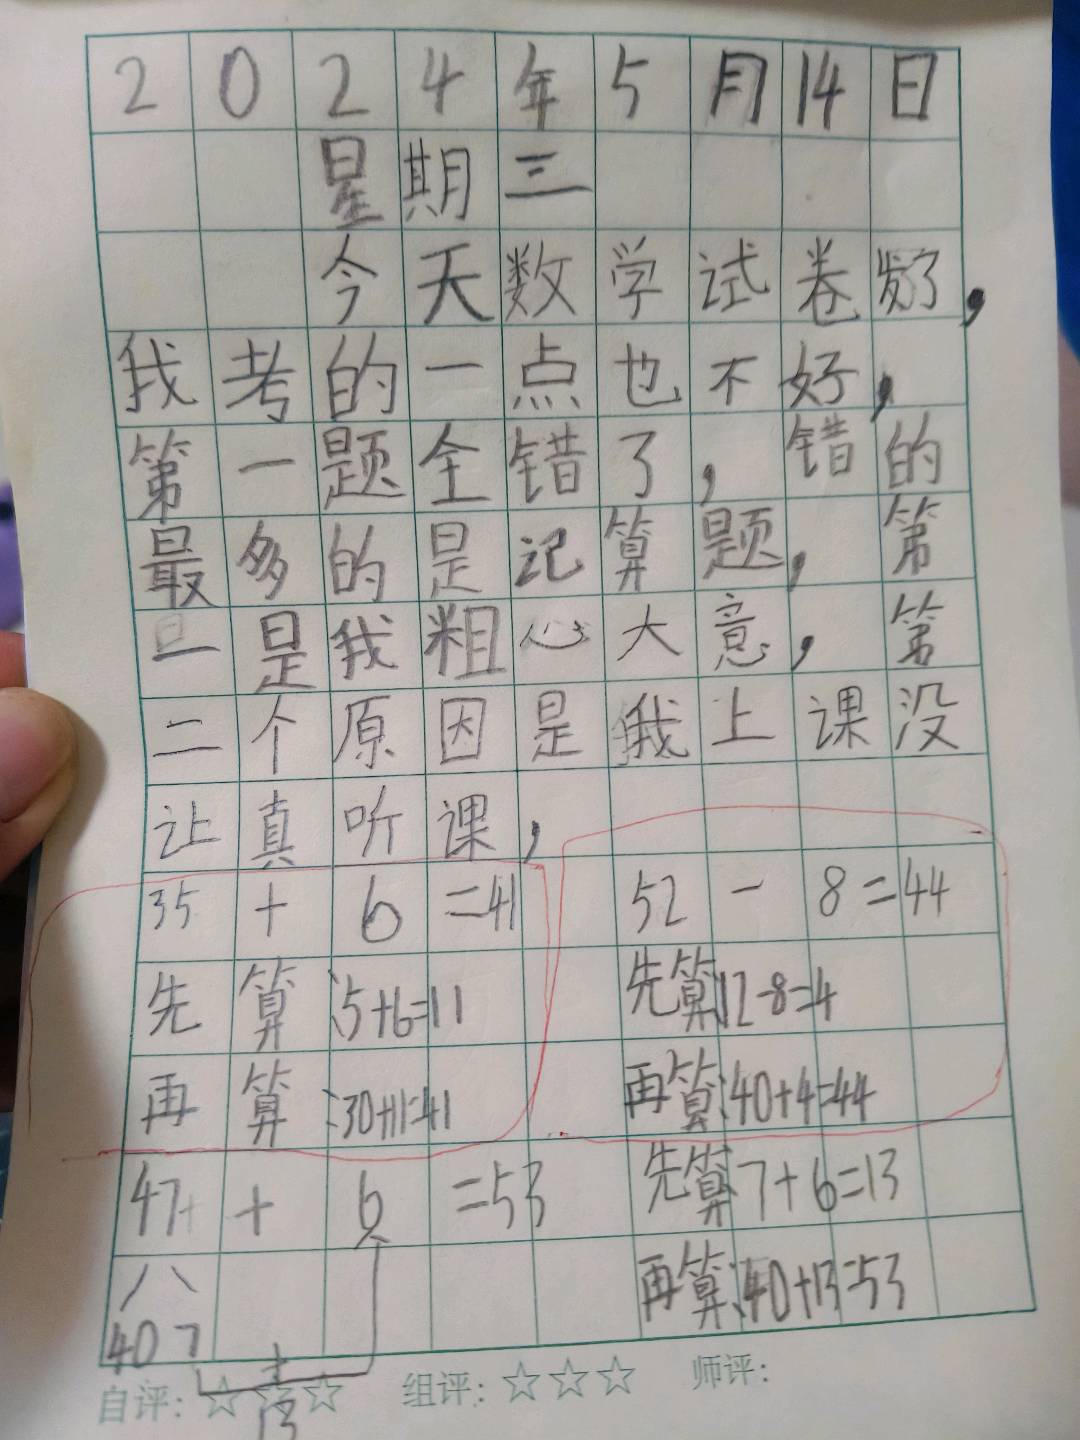 2024年5月14日
星期三
今天数学试卷发了，
我考的一点也不好，
第一题全错了，错的
最多的是记算题，第
一是我粗心大意，第
二个原因是我上课没
让真听课，
35+6=41 52-8=44
先算:5+6=11 先算12-8=4
再算:30+11=41 再算:40+4=44
47+6=53 先算7+6=13
40 7 再算:40+13=53
13
自评:☆☆☆ 组评:☆☆☆ 师评: